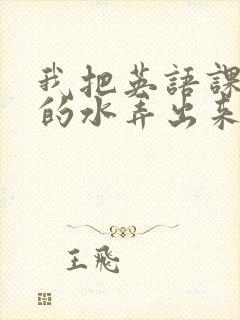 我把英語課
的水弄出来
王飛